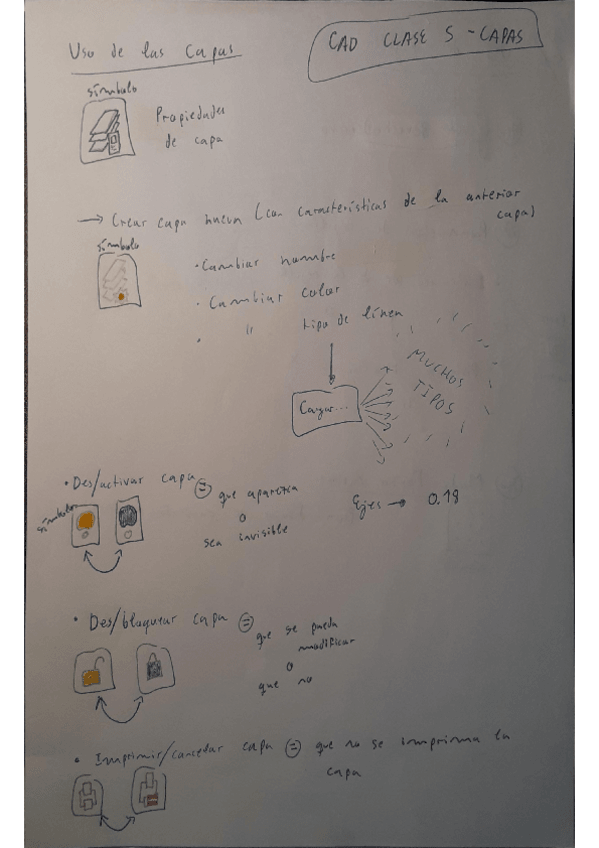 CAD CLASE 5 - CAPAS
Uso de las Capas
símbolo
Propiedades
de capa
→ Crear capa nueva (con características de la anterior
capa)
símbolo
• Cambiar nombre
• Cambiar color
• " tipo de línea
Cargar...
MUCHOS
TIPOS
• Des/activar capa = que aparezca
o
sea invisible
símbolos
Ejes → 0.18
• Des/bloquear capa = que se pueda
modificar
o
que no
• Imprimir/cancelar capa = que no se imprima la
capa